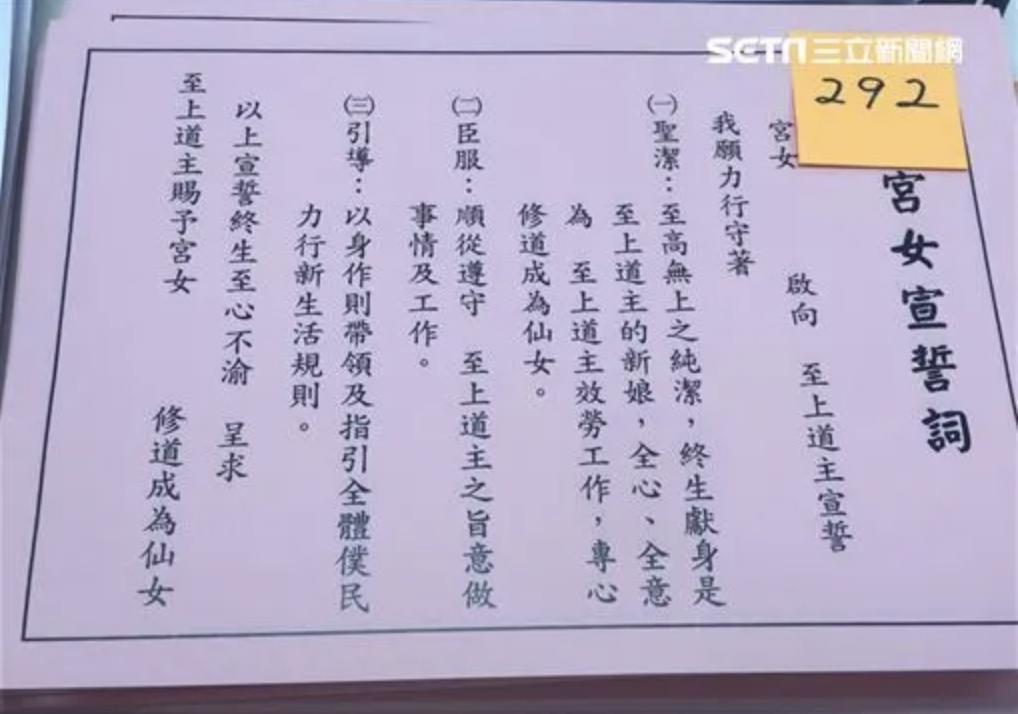 SETN三立新聞網
292
宮女宣誓詞
宮女　　　啟向　至上道主宣誓
我願力行守著
㈠聖潔：至高無上之純潔，終生獻身是
至上道主的新娘，全心、全意
為　至上道主效勞工作，專心
修道成為仙女。
㈡臣服：順從遵守　至上道主之旨意做
事情及工作。
㈢引導：以身作則帶領及指引全體僕民
力行新生活規則。
以上宣誓終生至心不渝　呈求
至上道主賜予宮女　　　修道成為仙女